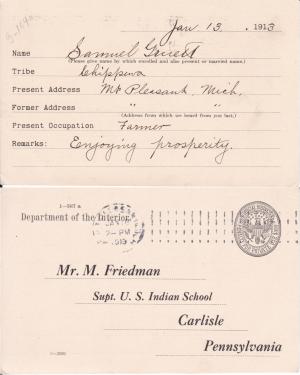 Jan 13. 1913
Name Samuel
(Please give name by which enrolled and also present or married name.)
Tribe Chippewa
Present Address Mt Pleasant, Mich.
Former Address " "
(Address from which we heard from you last.)
Present Occupation Farmer
Remarks: Enjoying prosperity.
Department of the Interior.
2-PM
1913
Mr. M. Friedman
Supt. U. S. Indian School
Carlisle
Pennsylvania